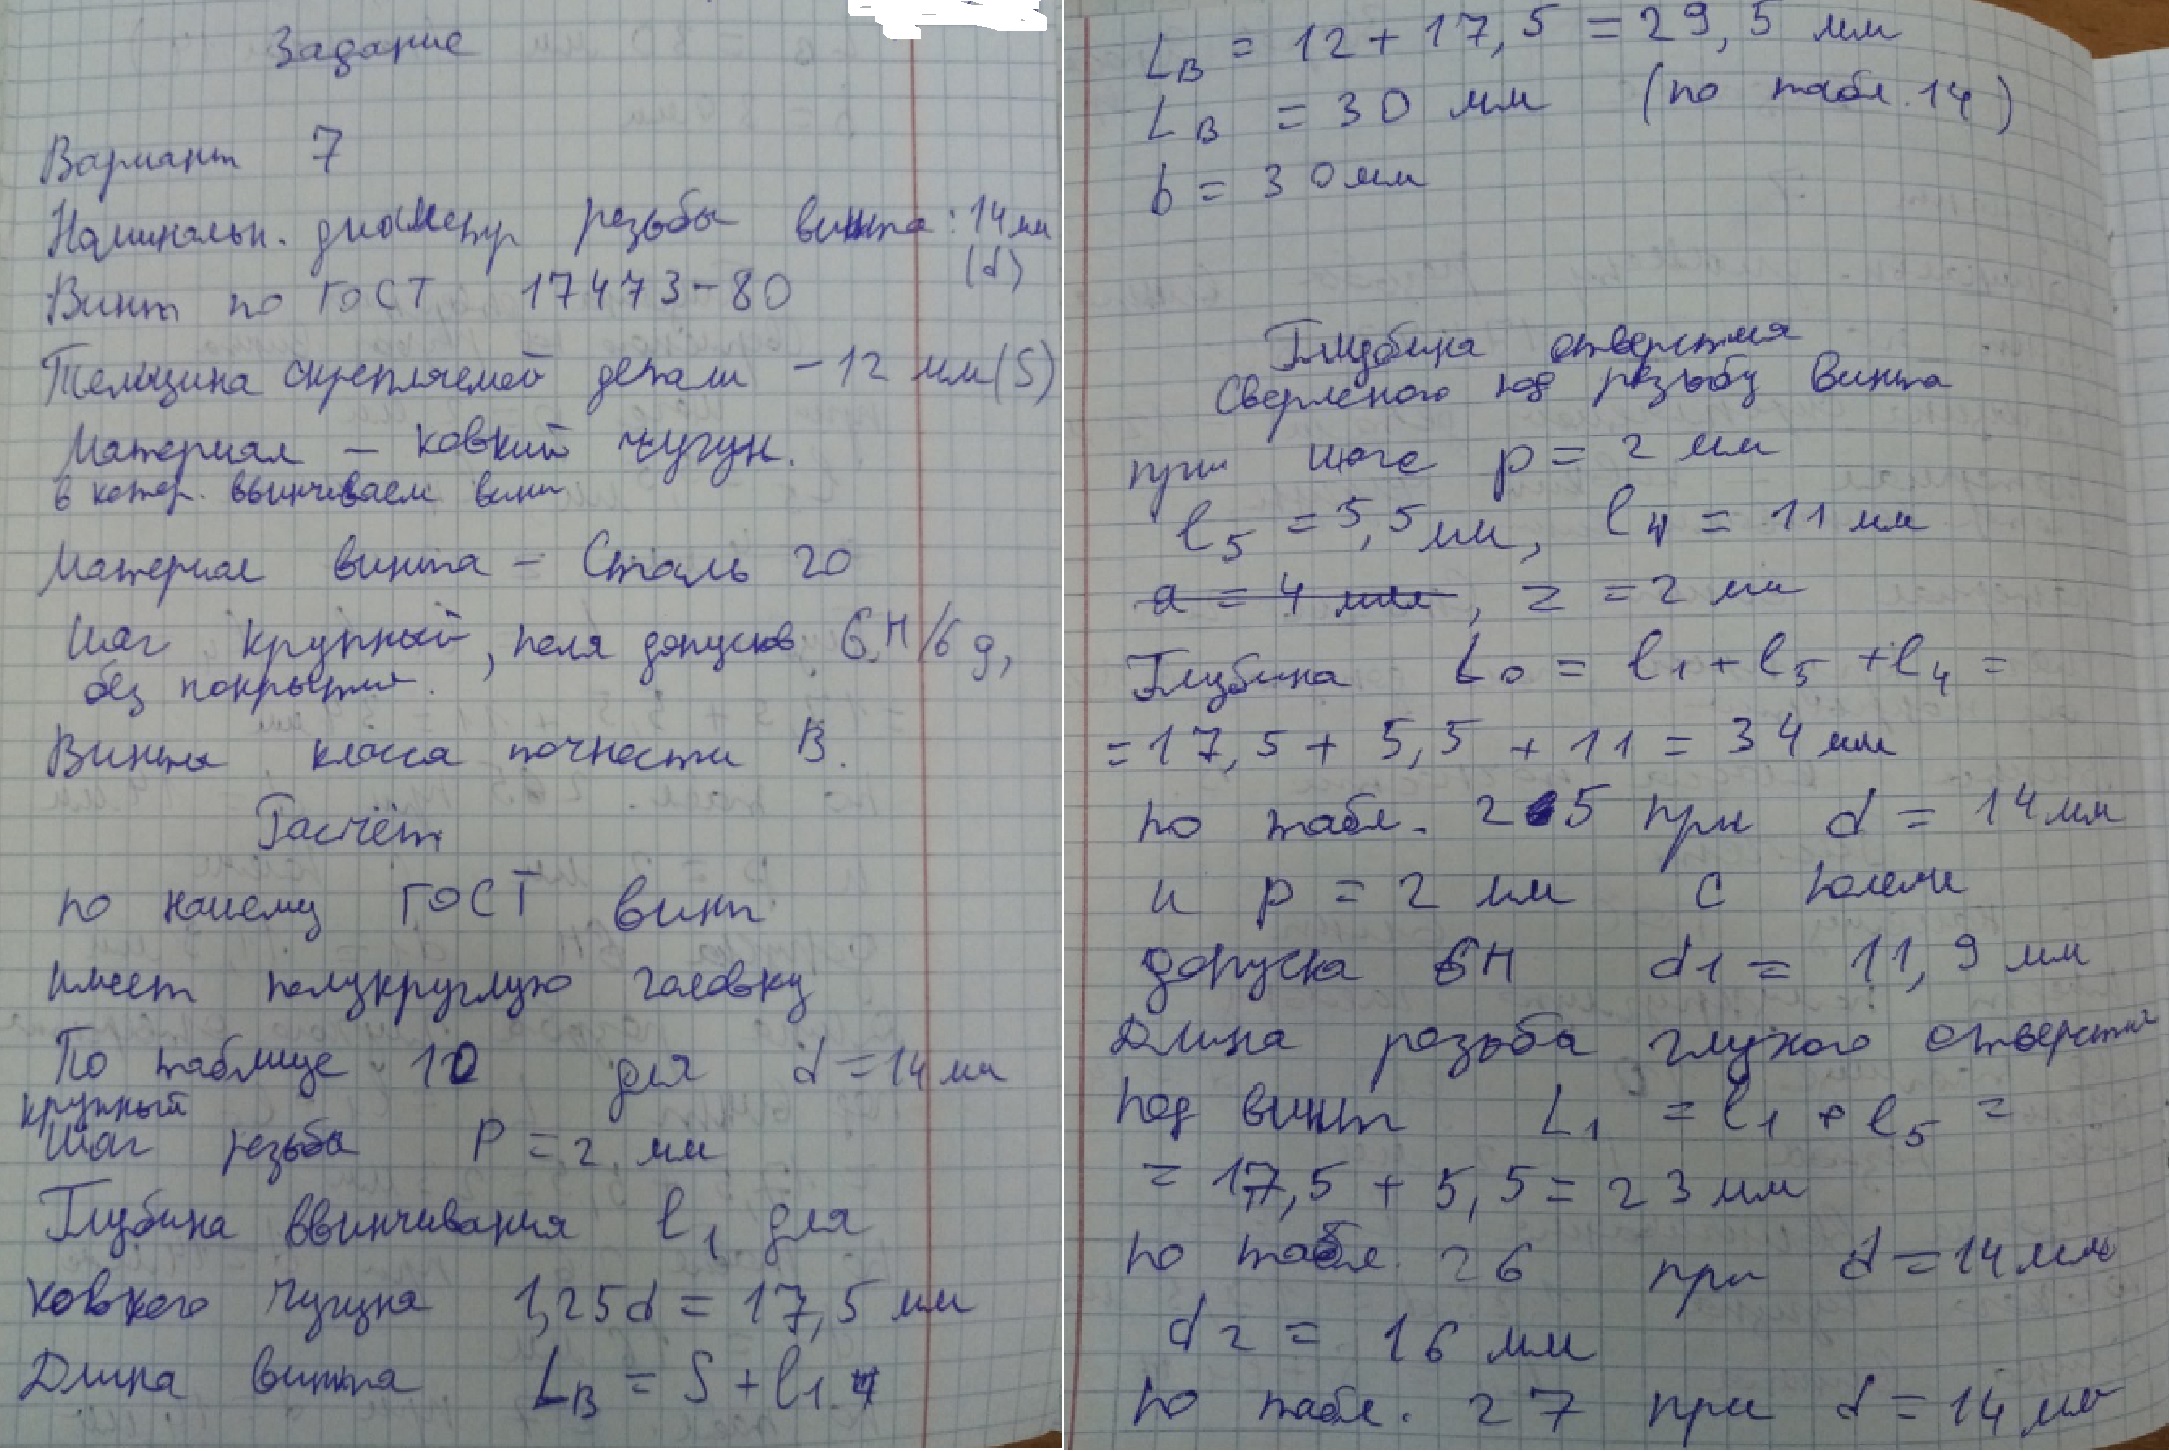 Задание
Вариант 7
Номинальн. диаметр резьбы винта: 14 мм
(d)
Винт по ГОСТ 17473-80
Толщина скрепляемой детали - 12 мм (S)
Материал - ковкий чугун.
в котор. ввинчиваем винт
Материал винта - Сталь 20
Шаг крупный, поля допусков 6H/6g,
без покрытия.
Винты класса точности В.
Расчёт
По нашему ГОСТ винт
имеет полукруглую головку
По таблице 10 для d = 14 мм
крупный
шаг резьбы P = 2 мм
Глубина ввинчивания l1 для
ковкого чугуна 1,25d = 17,5 мм
Длина винта LВ = S + l1
LВ = 12 + 17,5 = 29,5 мм
LВ = 30 мм (по табл. 14)
b = 30 мм
Глубина отверстия
Сверленого под резьбу винта
при шаге p = 2 мм
l5 = 5,5 мм, l4 = 11 мм
a = 4 мм, z = 2 мм
Глубина L0 = l1 + l5 + l4 =
= 17,5 + 5,5 + 11 = 34 мм
По табл. 25 при d = 14 мм
и p = 2 мм с полем
допуска 6H d1 = 11,9 мм
Длина резьбы глухого отверстия
под винт L1 = l1 + l5 =
= 17,5 + 5,5 = 23 мм
По табл. 26 при d = 14 мм
d2 = 16 мм
По табл. 27 при d = 14 мм